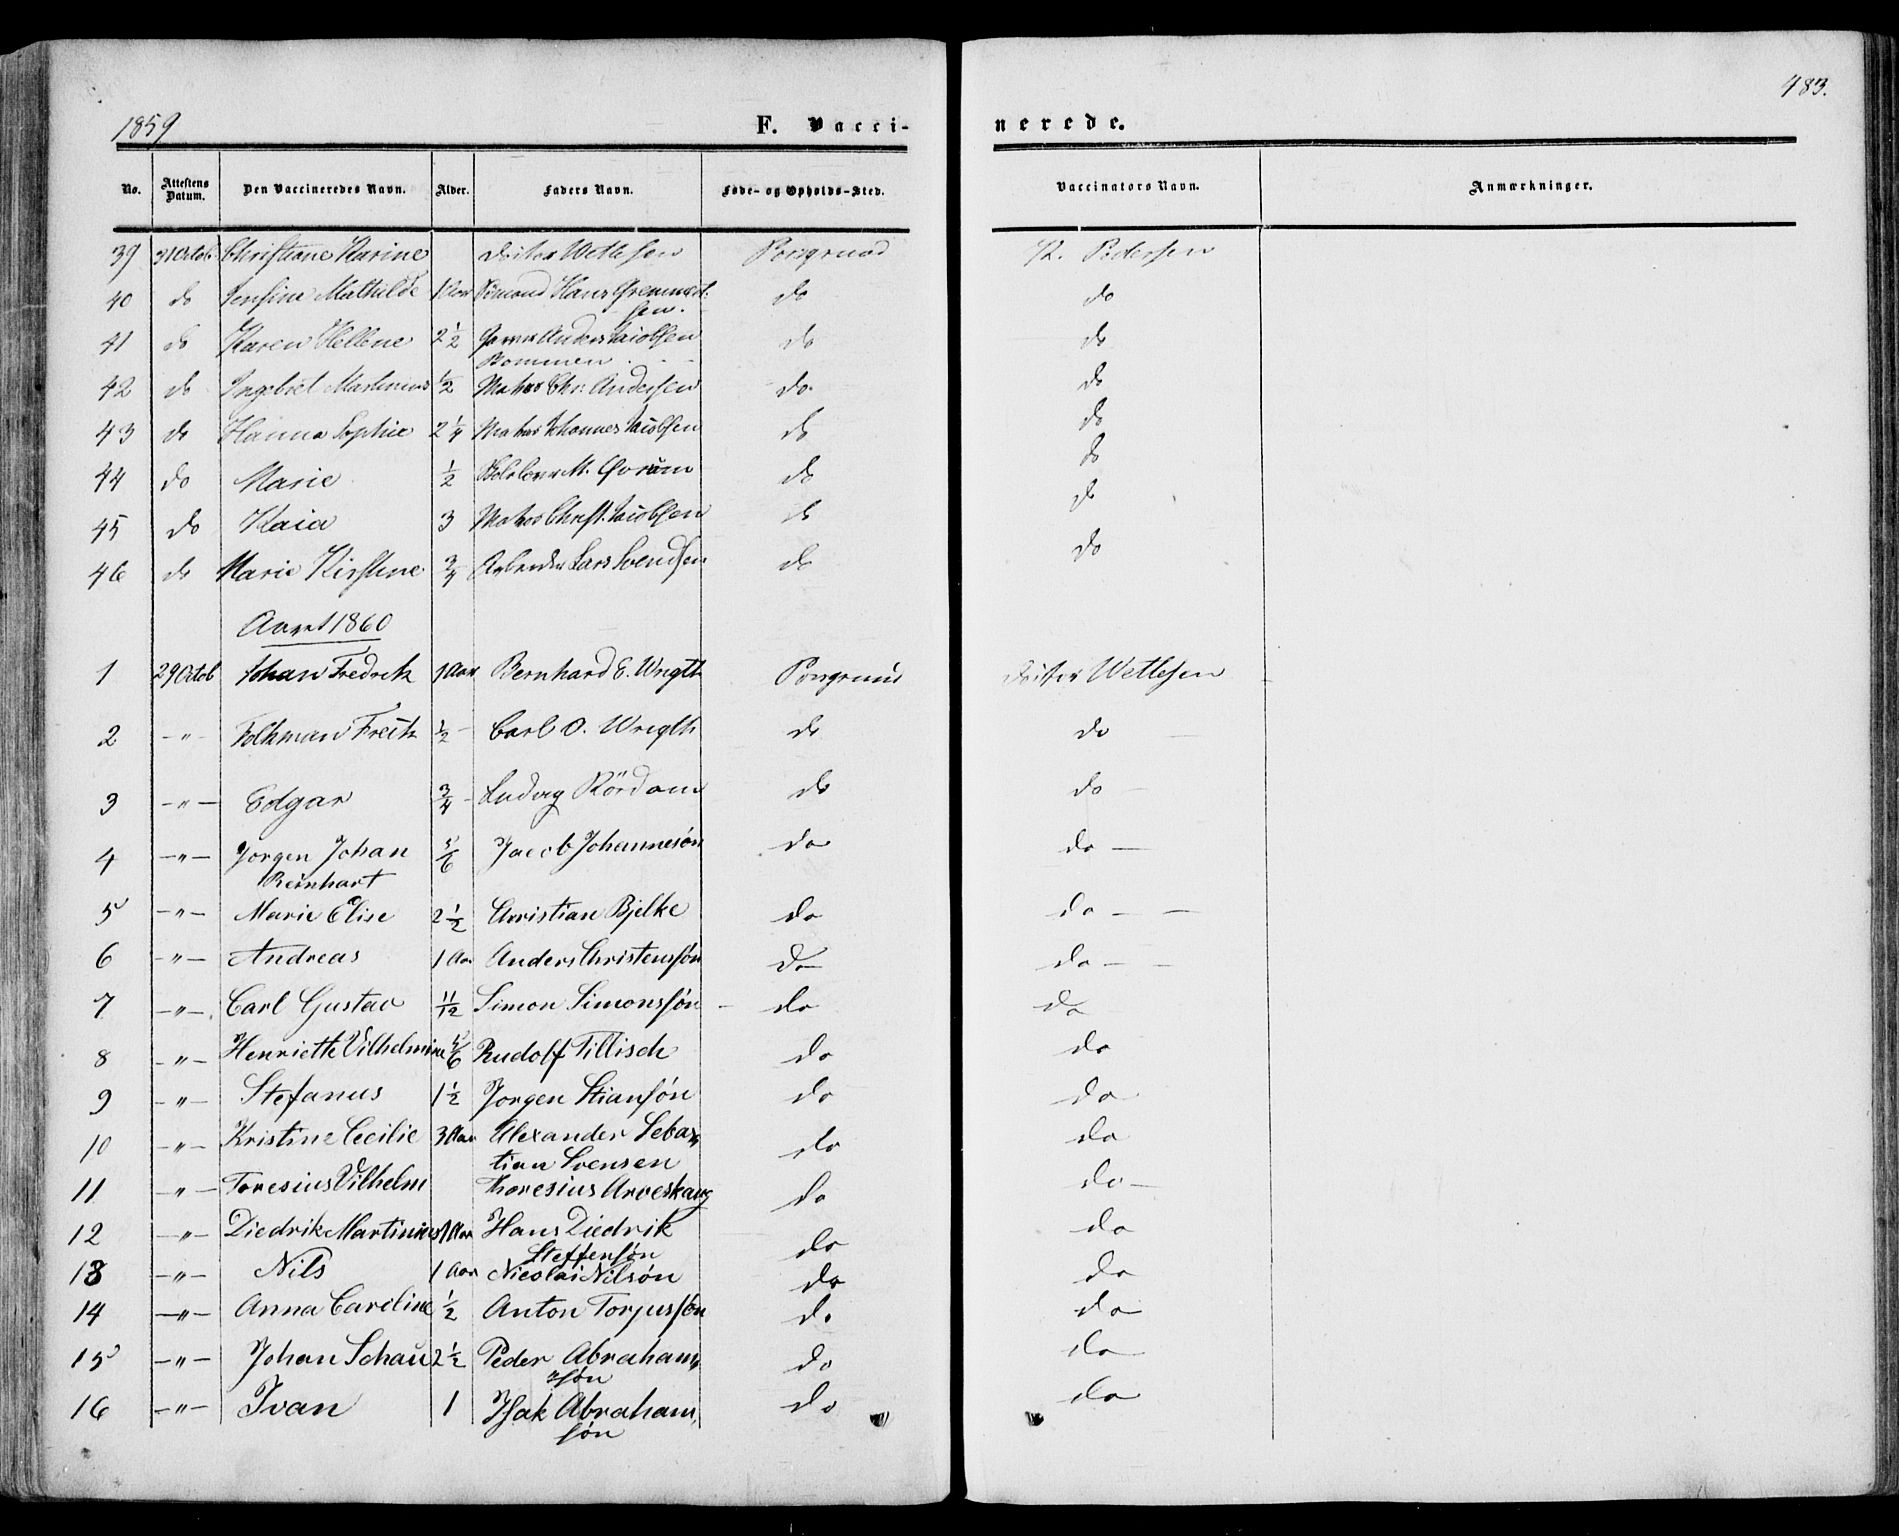 483.
1859 F. Vacci- nerede.
No. Attestens Datum. Den Vaccineredes Navn. Alder. Faders Navn. Føde- og Opholds-Sted. Vaccinators Navn. Anmærkninger.
39 31 Octob. Christiane Karine Doctor Wetlesen Porsgrund Pedersen
40 do Jensine Mathilde 1 Aar Hans do do
sen.
41 do Karen Hellene 2 1/2 Anders Jacobsen do do
42 do Ingebret Martinius 1/2 Matros Chr. Andersen do do
43 do Hanna Sophie 2 1/4 Matros Johannes Jacobsen do do
44 do Marie 1/2 M. do do
45 do Kaia 3 Matros Christ. Jacobsen do do
46 do Marie Kirstine 3/4 Arbeider Lars Svendsen do do
Aaret 1860
1 29 Octob Johan Fredrik 1 Aar Bernhard E. Wrigth Porsgrund Doctor Wetlesen
2 -"- Folkman Freitz 1/2 - Carl O. Wrigth do do
3 -"- Edgar 3/4 - Ludvig Rördam do do
4 -"- Jorgen Johan 5/6 Jacob Johannesøn do do
Reinhart
5 -"- Marie Elise 2 1/2 Christian Bjelke do do
6 -"- Andreas 1 Aar Anders Christensføn do do
7 -"- Carl Gustav 11/12 Simon Simonssøn do do
8 -"- Henriette Vilhelmine 5/6 Rudolf Tillisch do do
9 -"- Stefanus 1 1/2 Jorgen Stiansøn do do
10 -"- Kristine Cecilie 3 Aar Alexander Seba= do do
tian Svensen
11 -"- Toresius Vilhelm Thoresius Arveskaug do do
12 -"- Diedrik Martinius 1 Aar Hans Diedrik do do
Steffensøn
13 -"- Nils 1 Aar Nicolai Nilsøn do do
14 -"- Anna Caroline 1/2 Anton Torjussøn do do
15 -"- Johan Schau 2 1/2 Peder Abraham= do do
søn
16 -"- Ivan 1 Isak Abraham= do do
søn